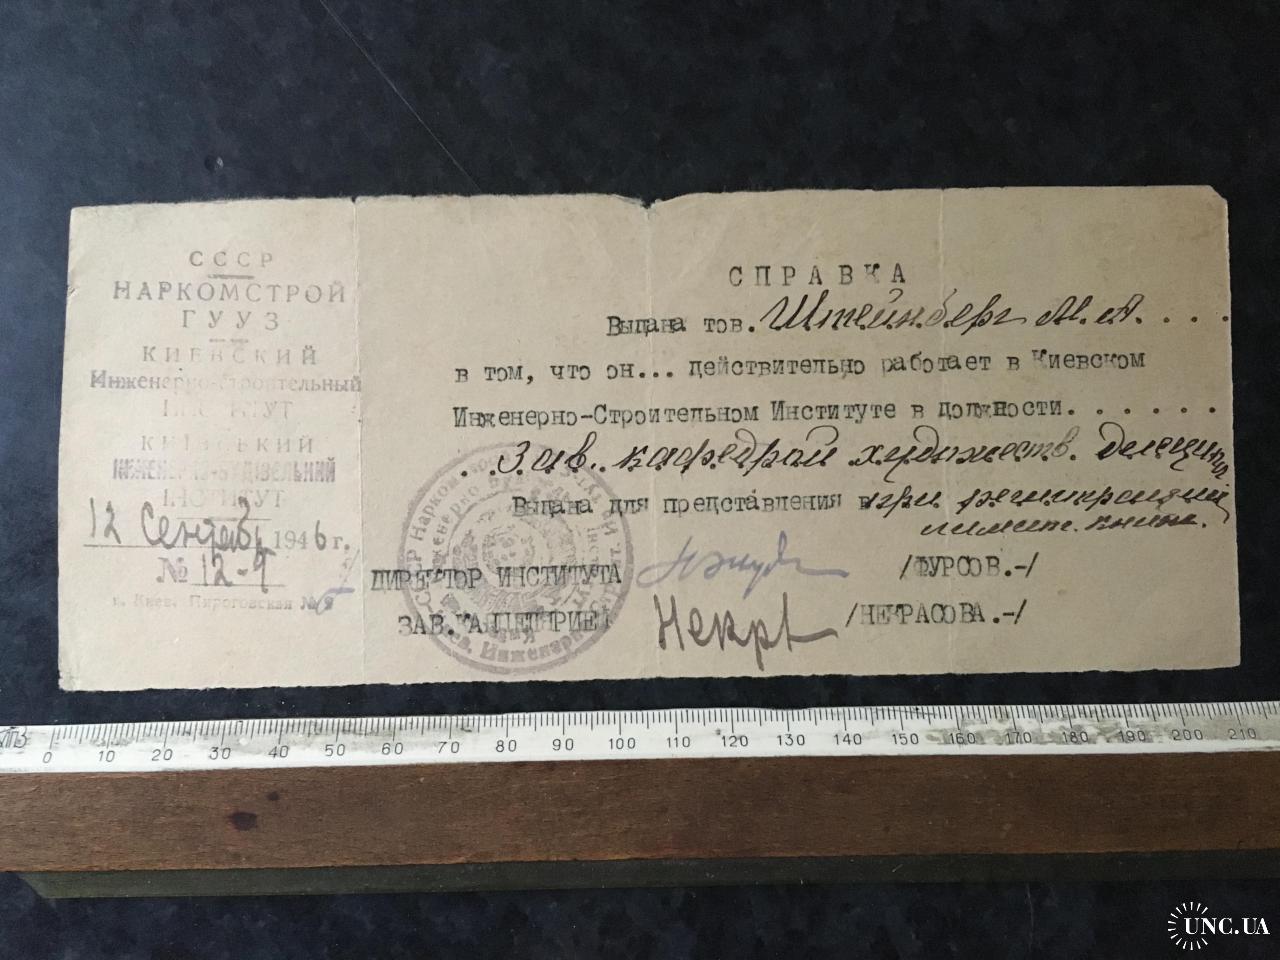 СССР
НАРКОМСТРОЙ
ГУУЗ
КИЕВСКИЙ
Инженерно-строительный
ИНСТИТУТ
КИЇВСЬКИЙ
ІНЖЕНЕРНО-БУДІВЕЛЬНИЙ
ІНСТИТУТ
12 Сентября 1946 г.
№ 12-9
г. Киев, Пироговская № 9
СПРАВКА
Выдана тов. Штейнберг М.А. . . .
в том, что он... действительно работает в Киевском
Инженерно-Строительном Институте в должности. . . . . . .
. . Зав. кафедрой художеств.
Выдана для представления при регистрации
книж.
ДИРЕКТОР ИНСТИТУТА /ФУРСОВ.-/
ЗАВ.КАНЦЕЛЯРИЕЙ Некра /НЕКРАСОВА.-/
СССР Нарком
0 10 20 30 40 50 60 70 80 90 100 110 120 130 140 150 160 170 180 190 200 210
UNC.UA